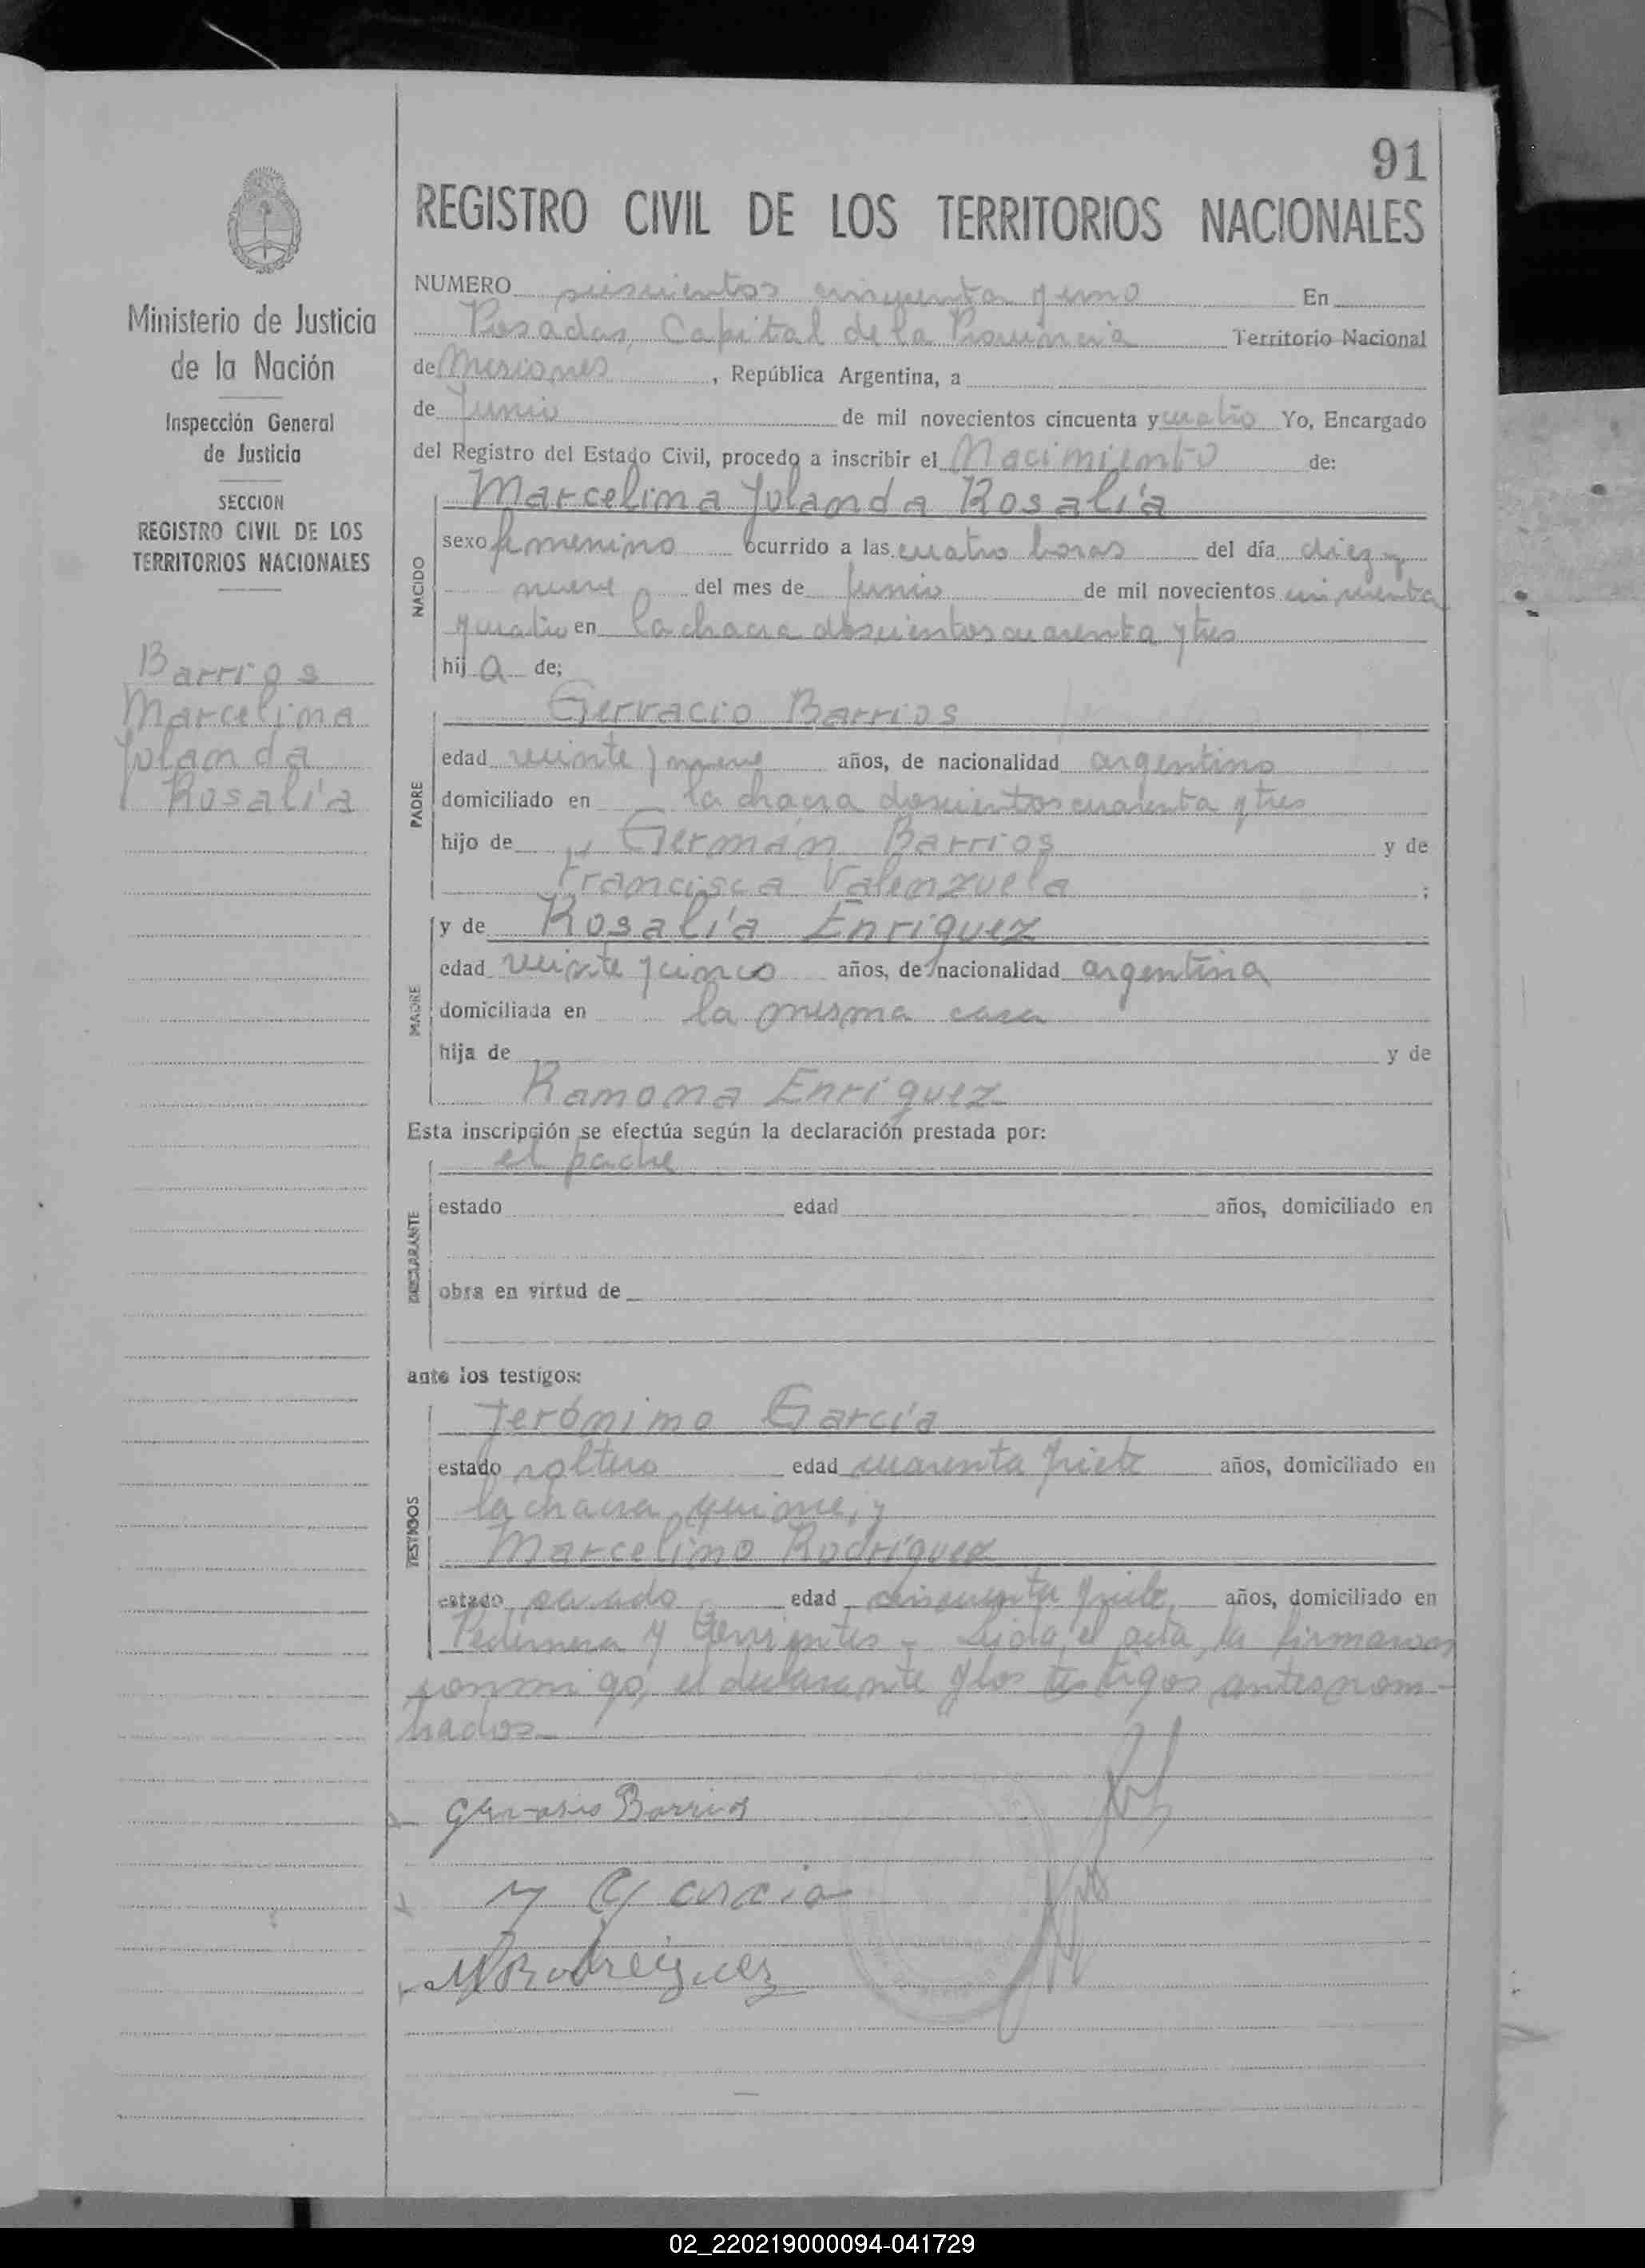 91
REGISTRO CIVIL DE LOS TERRITORIOS NACIONALES
Ministerio de Justicia
de la Nación
Inspección General
de Justicia
SECCION
REGISTRO CIVIL DE LOS
TERRITORIOS NACIONALES
Barrios
Marcelina
Yolanda
Rosalía
NUMERO seiscientos cincuenta y uno En
Posadas, Capital de la Provincia Territorio Nacional
de Misiones, República Argentina, a
de Junio de mil novecientos cincuenta y cuatro Yo, Encargado
del Registro del Estado Civil, procedo a inscribir el Nacimiento de:
NACIDO
Marcelina Yolanda Rosalía
sexo femenino ocurrido a las cuatro horas del día diez y
nueve del mes de Junio de mil novecientos cincuenta
y cuatro en la chacra doscientos cuarenta y tres
hija de;
PADRE
Gervacio Barrios
edad veinte y nueve años, de nacionalidad argentino
domiciliado en la chacra doscientos cuarenta y tres
hijo de Germán Barrios y de
Francisca Valenzuela ;
MADRE
y de Rosalía Enriquez
edad veinte y cinco años, de nacionalidad argentina
domiciliada en la misma casa
hija de y de
Ramona Enriquez
Esta inscripción se efectúa según la declaración prestada por:
DECLARANTE
el padre
estado edad años, domiciliado en
obra en virtud de
ante los testigos:
TESTIGOS
Jerónimo García
estado soltero edad cuarenta y siete años, domiciliado en
la chacra quince, y
Marcelino Rodríguez
estado casado edad cincuenta y siete, años, domiciliado en
Pedernera y Corrientes - Leída el acta, la firmaron
conmigo, el declarante y los testigos antes nom-
brados
Gervasio Barrios
Garcia
M Rodreiguez
02_220219000094-041729